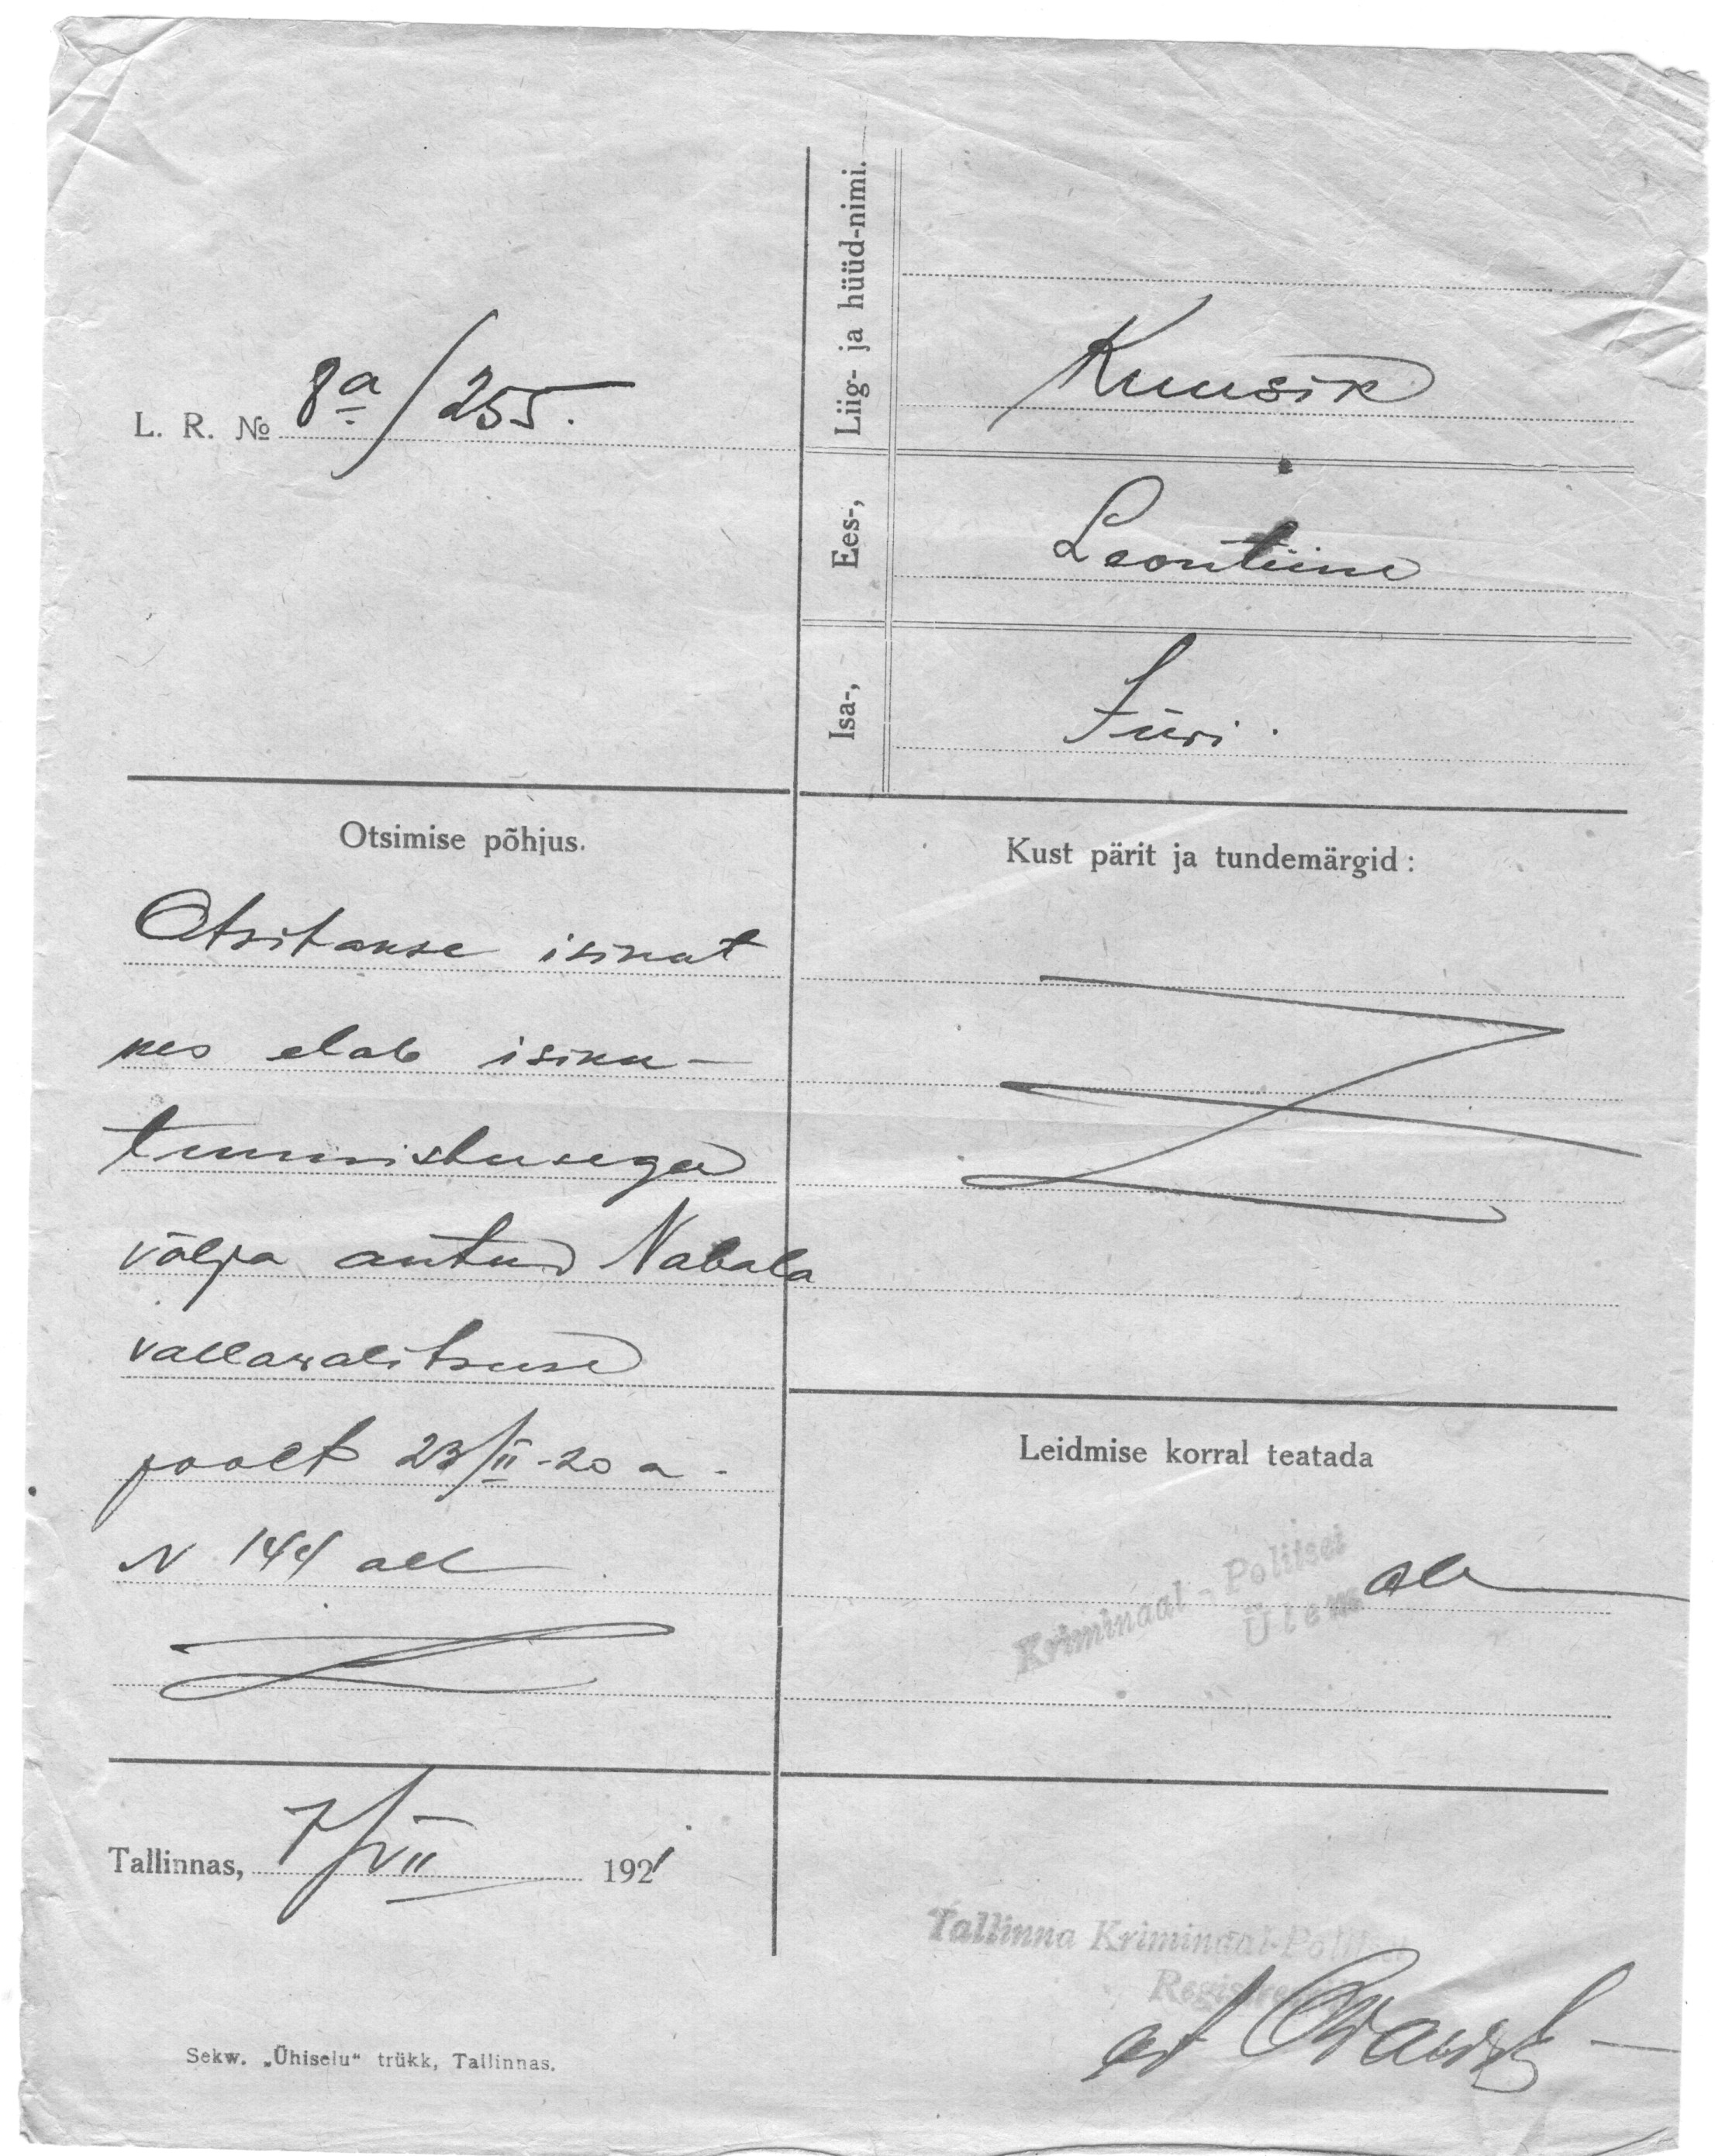 L. R. № 8a/255.
Liig- ja hüüd-nimi.
Kuusik
Ees-,
Leontiine
Isa-,
Jüri.
Otsimise põhjus.
Otsitakse isikut
kes elab isiku-
tunnistusega
välja antud Nabala
vallavalitsuse
poolt 23/II-20 a.
N 144 all
Kust pärit ja tundemärgid:
Leidmise korral teatada
Kriminaal-Politsei
Ülema ale
Tallinnas, 7/VII 1921
Tallinna Kriminaal-Politsei
Sekw. „Ühiselu“ trükk, Tallinnas.